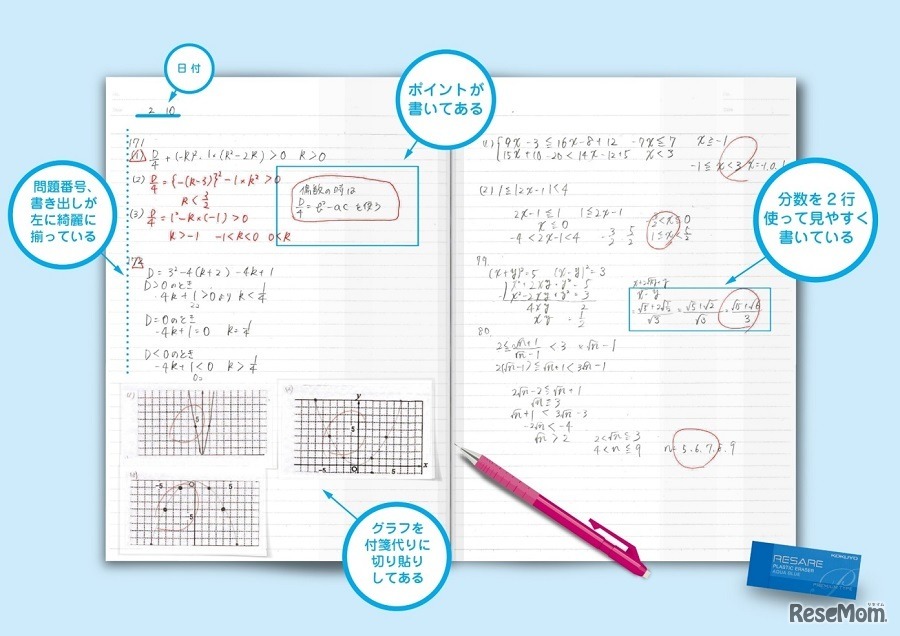 日付
ポイントが
書いてある
問題番号、
書き出しが
左に綺麗に
揃っている
分数を2行
使って見やすく
書いている
グラフを
付箋代りに
切り貼り
してある
2 10
171
(1) D/4 = {-(k-3)}² - 1×k² > 0
k < 3/2
(3) D/4 = 1² - k×(-1) > 0
k > -1 -1 < k < 0 0 < k
偶数の時は
D/4 = b² - ac を使う
D = 3² - 4(k+2) = -4k+1
D>0のとき
-4k+1>0より k<1/4
D=0のとき
-4k+1=0 k=1/4
D<0のとき
-4k+1<0 k>1/4
(1) 9x-3≦16x-8+12 -7x≦7 x≧-1
15x+10-20<14x-12+5 x<3
-1≦x<3
(2) 1≦|2x-1|<4
2x-1≦1 1≦2x-1
x≦0
-4<2x-1<4 -3/2 5/2
-3/2<x≦0
1≦x<5/2
79.
(x+y)²=5 (x-y)²=3
x²+2xy+y²=5
x²-2xy+y²=3
4xy 2
xy = 1/2
80.
2≦ √n+1/√n-1 <3 ×√n-1
2(√n-1)≦√n+1<3√n-1
2√n-2≦√n+1
√n≦3
√n+1<3√n-3
-2√n<-4
√n>2 2<√n≦3
4<n≦9 n=5.6.7.8.9
y
5
-5
0
5
x
RESARE
PLASTIC ERASER
AQUA BLUE
KOKUYO
PREMIUM TYPE
ReseMom.